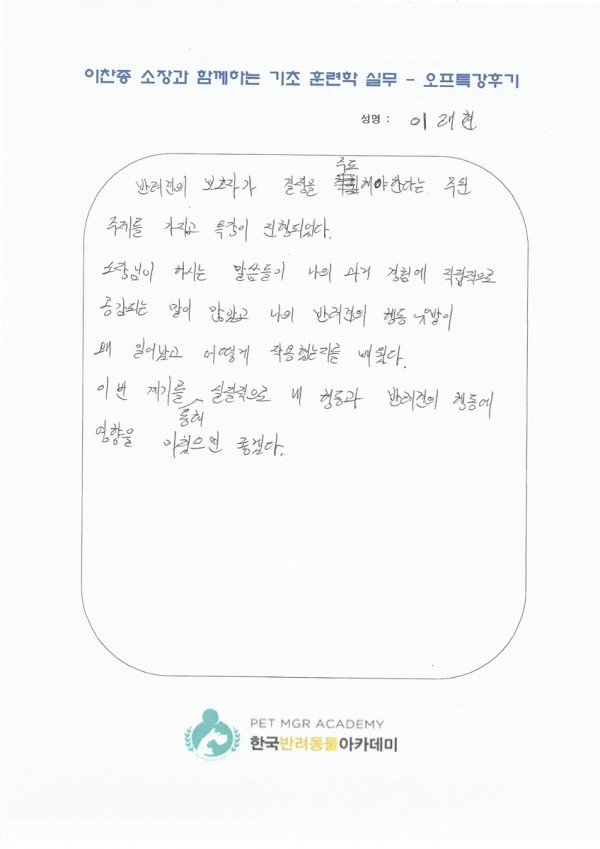 이찬종 소장과 함께하는 기초 훈련학 실무 - 오프특강후기
성명 : 이래현
반려견의 보호자가 결정을 주도해야한다는 주된
주제를 가지고 특강이 진행되었다.
소장님이 하시는 말씀들이 나의 과거 경험에 직접적으로
공감되는 말이 많았고 나의 반려견의 행동 유발이
왜 일어났고 어떻게 작용했는지를 배웠다.
이번 계기를 통해 실질적으로 내 행동과 반려견의 행동에
영향을 미쳤으면 좋겠다.
PET MGR ACADEMY
한국반려동물아카데미